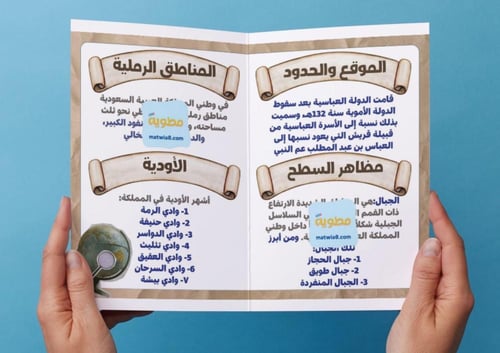 الموقع والحدود
قامت الدولة العباسية بعد سقوط
الدولة الأموية سنة 132هـ، وسميت
بذلك نسبة إلى الأسرة العباسية من
قبيلة قريش التي يعود نسبها إلى
العباس بن عبد المطلب عم النبي
مظاهر السطح
الجبال:هي الشديدة الارتفاع
ذات القمم السلاسل
الجبلية داخل وطني
المملكة ومن أبرز
تلك الجبال:
1- جبال الحجاز
2- جبال طويق
3- الجبال المنفردة
مطوية
matwia8.com
المناطق الرملية
في وطني العربية السعودية
مناطق نحو ثلث
مساحته، النفود الكبير،
مطوية
matwia8.com
الأودية
أشهر الأودية في المملكة:
1- وادي الرمة
2- وادي حنيفة
3- وادي الدواسر
4- وادي تثليث
5- وادي العقيق
6- وادي السرحان
٧- وادي بيشة